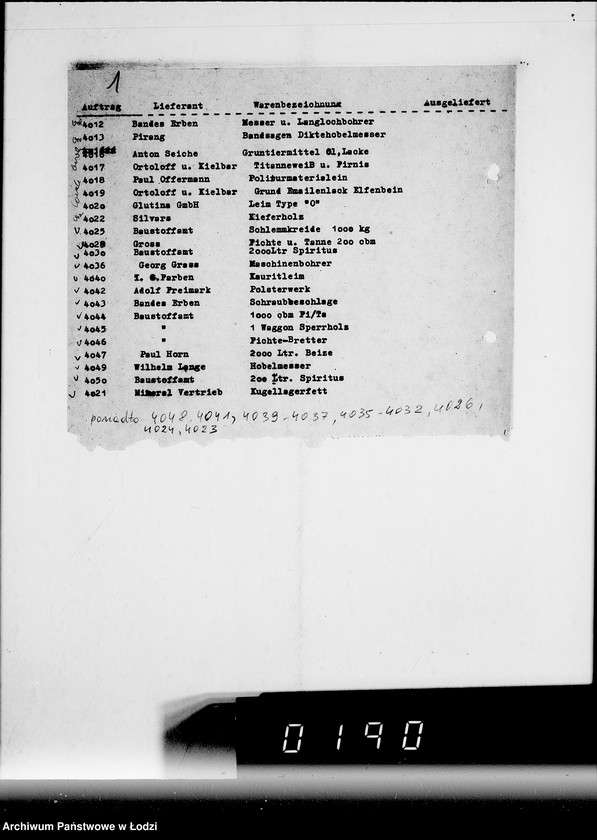 1
Auftrag Lieferant Warenbezeichnung Ausgeliefert
4012 Bandes Erben Messer u. Langlochbohrer
4013 Pirang Bandsagen Diktehobelmesser
4016 Anton Seiche Gruntiermittel Öl,Lacke
4017 Ortoloff u. Kielbar Titanneweiß u. Firnis
4018 Paul Offermann Polituurmaterialein
4019 Ortoloff u. Kielbar Grund Emailenlack Elfenbein
4020 Glutina GmbH Leim Type "O"
4022 Silvara Kieferholz
v 4025 Baustoffamt Schlemmkreide 1000 kg
v 4028 Gross Fichte u. Tanne 200 cbm
v 4030 Baustoffamt 2000Ltr Spiritus
v 4036 Georg Grass Maschinenbohrer
v 4040 I. G.Farben Kauritleim
v 4042 Adolf Freimark Polsterwerk
v 4043 Bandes Erben Schraubbeschlage
v 4044 Baustoffamt 1000 qbm Fi/Ta
v 4045 " 1 Waggon Sperrholz
v 4046 " Fichte-Bretter
v 4047 Paul Horn 2000 Ltr. Beize
v 4049 Wilhelm Lange Hobelmesser
v 4050 Baustoffamt 200 Ltr. Spiritus
v 4021 Mineral Vertrieb Kugellagerfett
ponadto 4048, 4041, 4039-4037, 4035-4032, 4026,
4024, 4023
0190
Archiwum Państwowe w Łodzi